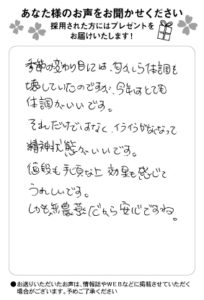 あなた様のお声をお聞かせください
採用された方にはプレゼントを
お届けいたします!
季節の変わり目には、 体調を
壊していたのですが、今年はとても
体調がいいです。
それだけではなく、イライラがなくなって
精神状態がいいです。
値段も手頃なのに効果も感じて
うれしいです。
しかも無農薬だから安心ですね。
●お送りいただいたお声は、情報誌やWEBなどに掲載させていただく
場合がございます。予めご了承ください